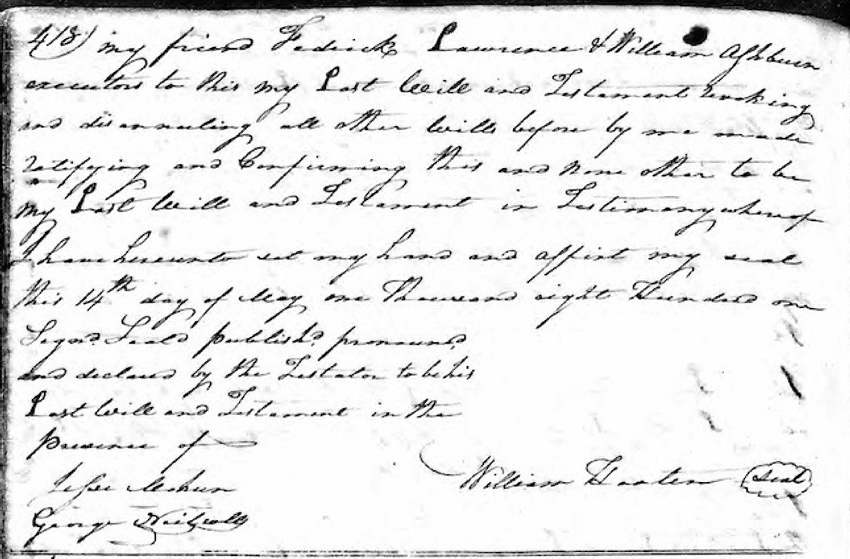 418) my friend Fedrick Lawrence & William Ashburn
executors to this my Last Will and Testament revoking
and disannulling all other Wills before by me made
ratifying and Confirming this and none other to be
my Last Will and Testament in Testimony whereof
I have hereunto set my hand and affixt my seal
this 14th day of May one Thousand eight Hundred one
Signd. Seald publishd. pronouncd.
and declared by the Testator to be his
Last Will and Testament in the
presence of
William Hooten Seal
Jesse
George